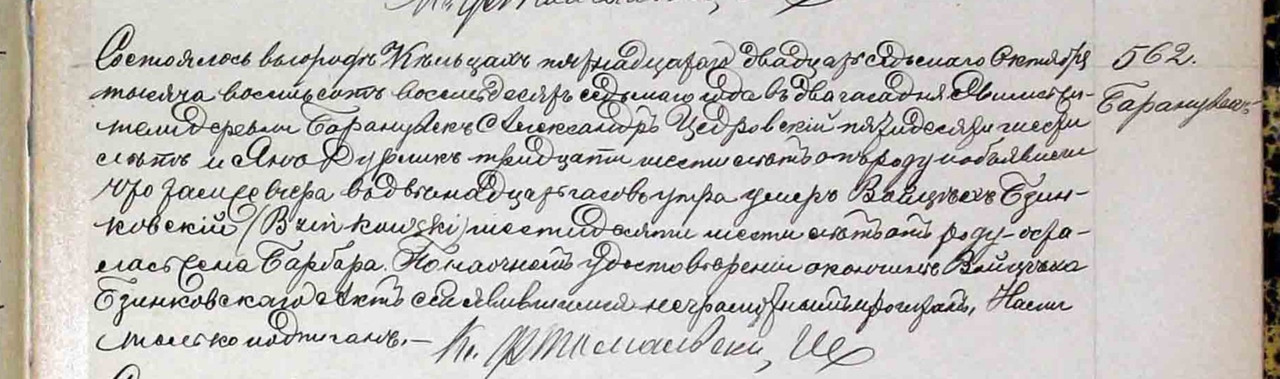 Состоялось въ городѣ Кѣльцахъ пятнадцатаго двадцать седьмаго Октября
тысяча восемьсотъ восемьдесятъ седьмаго года въ два часа дня. Явились жи-
тели деревни Баранувекъ Александръ Цедровскій пятидесяти шести
лѣтъ и Янъ Дурликъ тридцати шести лѣтъ отъ роду и объявили
что вчера въ двѣнадцать часовъ утра умеръ Войцѣхъ Бзин-
ковскій (Bzinkowski) шестидесяти шести лѣтъ отъ роду - оста-
лась жена Барбара. По наочномъ удостовѣреніи о кончинѣ Войцѣха
Бзинковскаго Актъ сей явившимся неграмотнымъ прочитанъ, Нами
только подписанъ. —
562.
Барануве